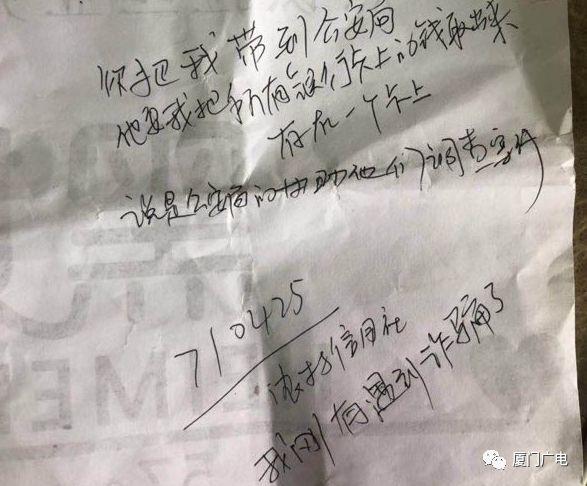 你把我带到公安局
他要我把所有银行卡上的钱取出来
存在一个卡上
说是公安局的协助他们调查案件
710425
农村信用社
我刚有遇到诈骗了
厦门广电